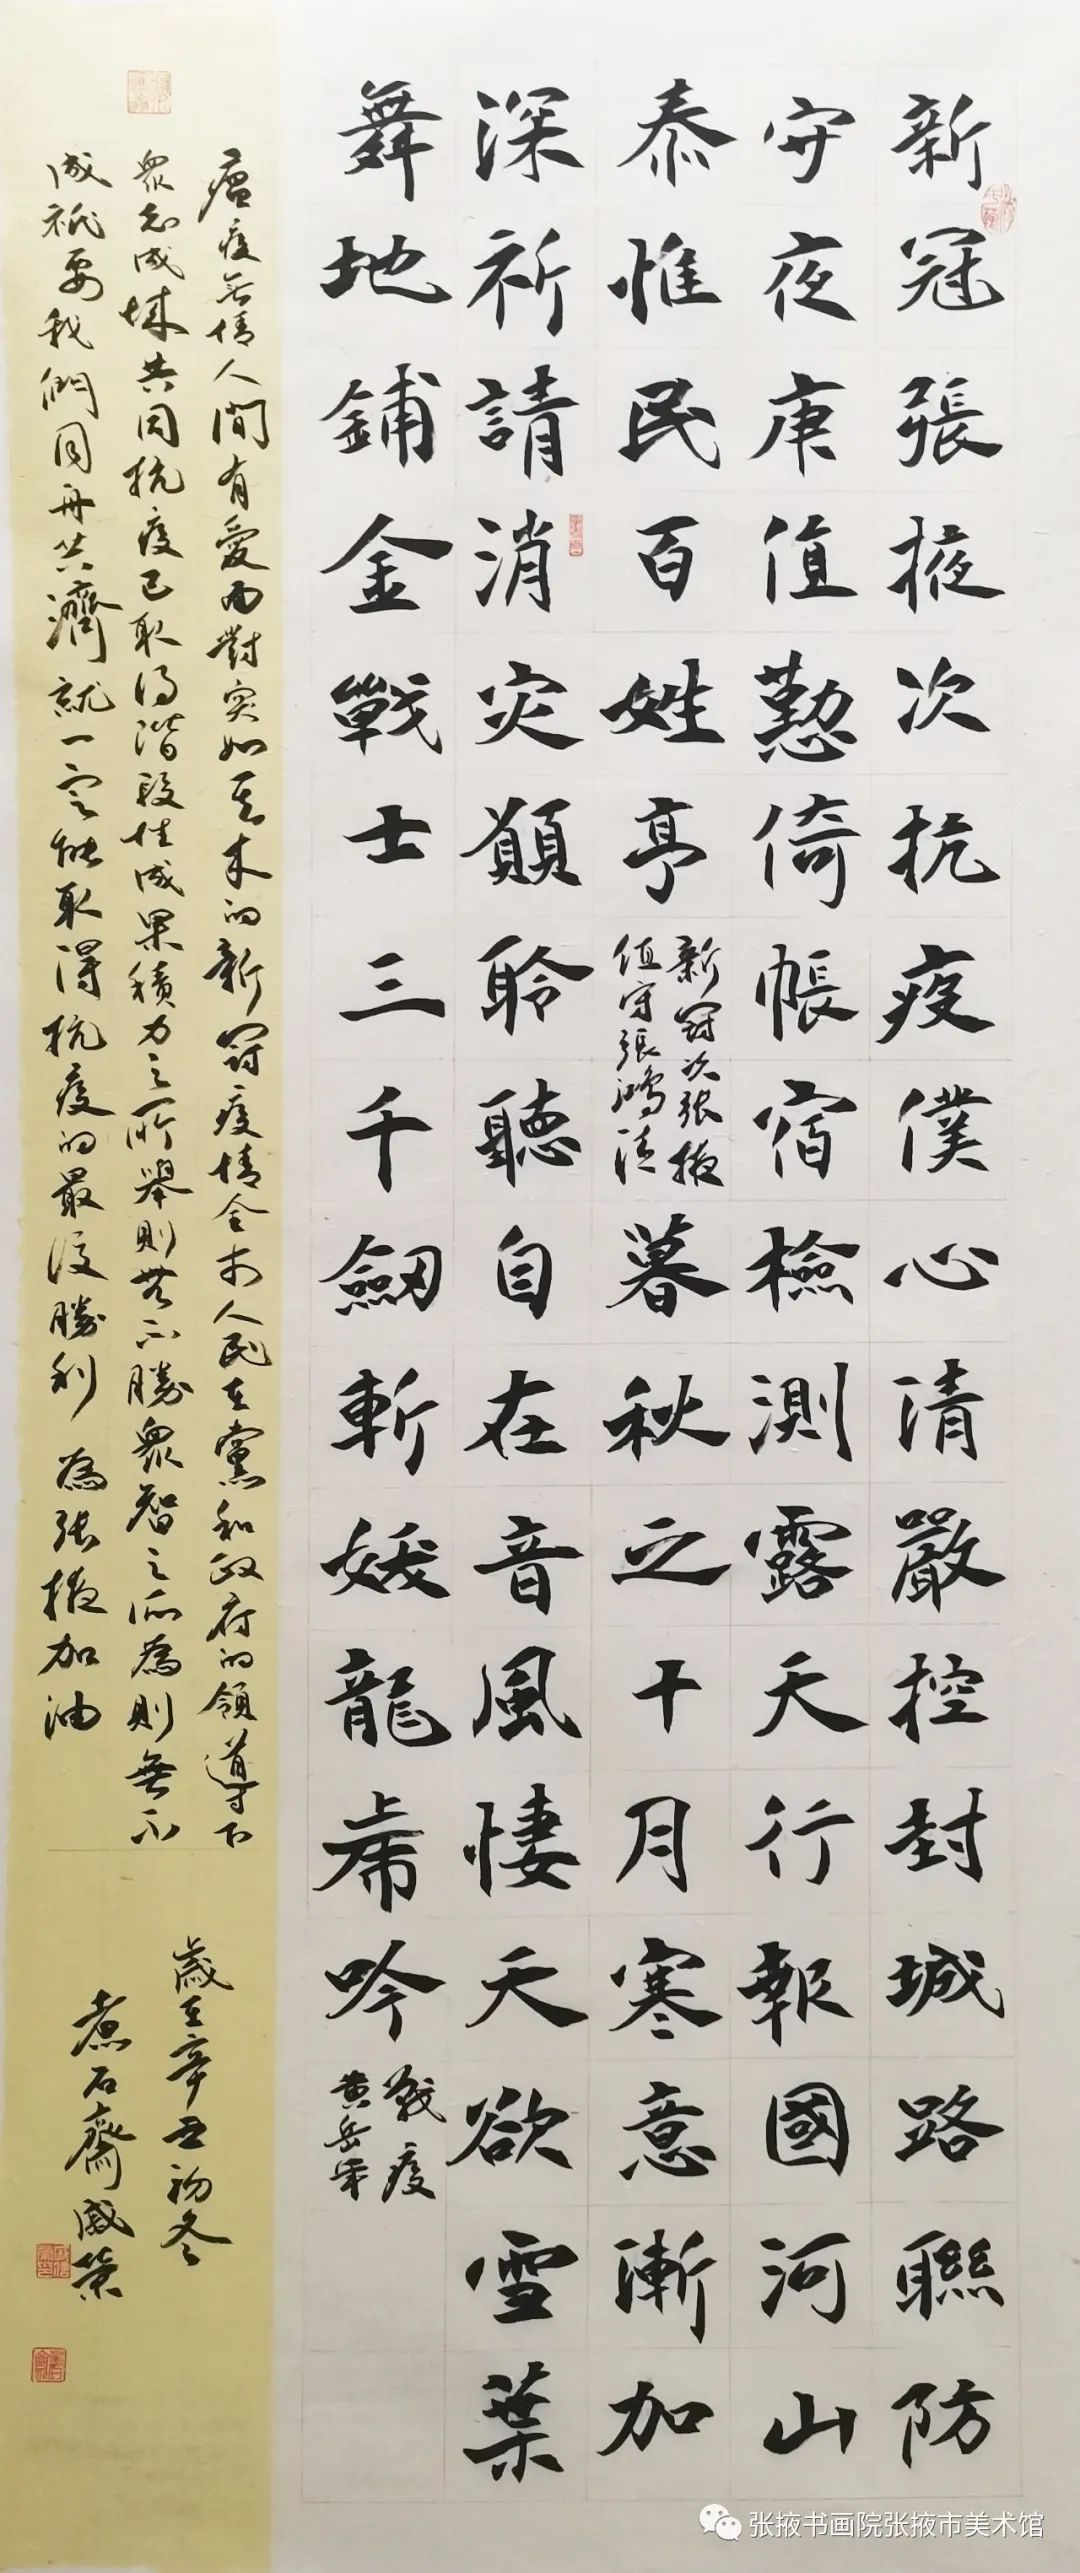 新冠張掖次抗疫僕心清嚴控封城路聯防
守夜庚值懃倚帳宿檢測露天行報國河山
泰惟民百姓亭
新冠次張掖
值守張鴻清
暮秋之十月寒意漸加
深祈請消灾願聆聽自在音風悽天欲雪葉
舞地鋪金戰士三千劒斬妖龍虎吟
戰疫
黄岳年
瘟疫无情人間有愛面對突如其来的新冠疫情全市人民在黨和政府的領導下
眾志成城共同抗疫已取得階段性成果積力之所舉則無不勝眾智之所為則無不
成祇要我們同舟共濟就一定能取得抗疫的最後勝利 為張掖加油
歲在辛丑初冬
煮石齋盛榮
张掖书画院张掖市美术馆